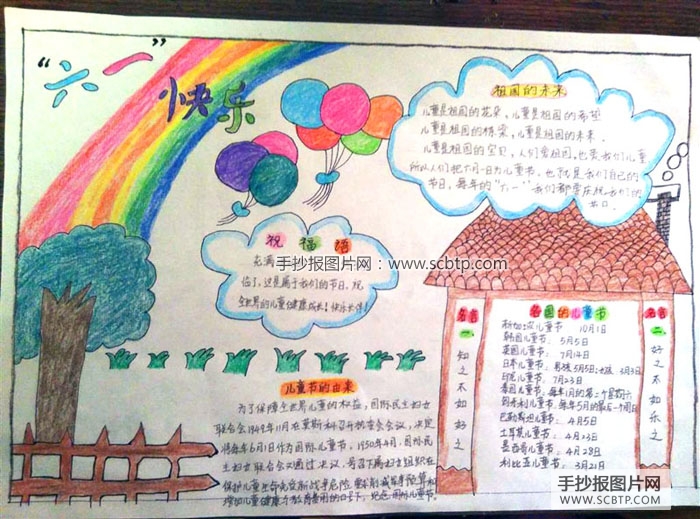 “六一”
快乐
祖国的未来
儿童是祖国的花朵、儿童是祖国的希望
儿童是祖国的栋梁、儿童是祖国的未来、
儿童是祖国的宝贝、人们爱祖国,也爱我们儿童
所以人们把六月一日为儿童节、也就是我们自己的
节日,每年的“六一”我们都要庆祝我们的
节日
祝福语
充满
临了,这是属于我们的节日,祝
全世界的儿童健康成长!快乐长伴!
手抄报图片网:www.scbtp.com
儿童节的由来
为了保障全世界儿童的权益,国际民主妇女
联合会1949年11月在莫斯科召开执委会会议,决定
将每年6月1日作为国际儿童节。1950年4月,国际民
主妇女联合会又通过决议,号召下属妇女组织在
保护儿童生命免受新战争危险、要求削减军事预算和
增加儿童健康与教育基金的口号下,纪念国际儿童节。
名言
一、
知之不如好之
各国的儿童节
新加坡儿童节 10月1日
韩国儿童节: 5月5日
英国儿童节: 7月14日
日本儿童节: 男孩5月5日;女孩3月3日
印尼儿童节: 7月23日
泰国儿童节: 每年1月的第二个星期六
哥本利儿童节: 每年5月的最后一个周日
巴勒斯坦儿童节: 4月5日
土耳其儿童节: 4月23日
墨西哥儿童节: 4月28日
利比亚儿童节: 3月21日
名言
二、
好之不如乐之
手抄报图片网
WWW.SCBTP.COM